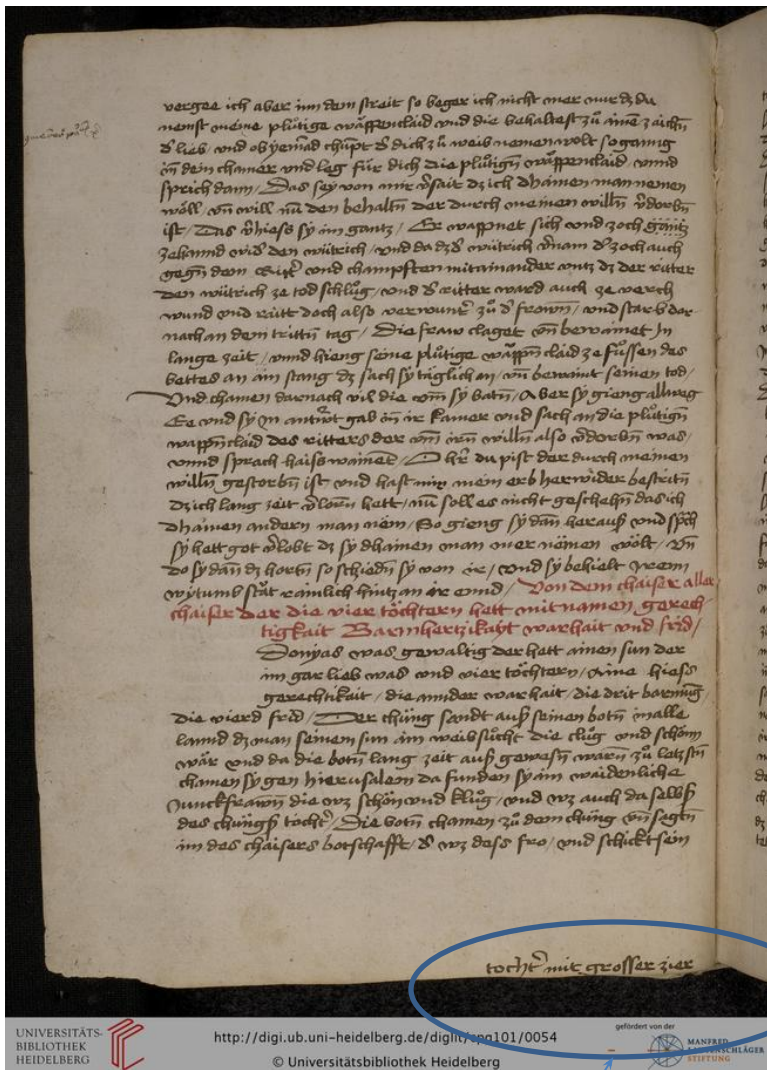 vergee ich aber inn dem streit so beger ich nicht mer nur dz du
nemst meine plůtige wäppenclaid vnd die behaltest zů aine zaichn
lieb vnd ob yemãd chũpt dich zů weib nemen wolt so ganng
in dein chamer vnd leg für dich die plůtign wäppenclaid vnnd
sprich dann / Das sey von mir dz ich dhainen man nemen
wöll / vñ will nũ den behaltñ der durch meinen willñ
ist / Das sy im gantz / Er wappnet sich vnd zoch
zehannd den wütrich / vnd da wütrich zoch auch
gegñ dem vnd champften mitainander vntz dz der ritter
den wütrich ze tod schlůg / vnd ritter ward auch ze verch
wund vnd raitt doch also zů frowñ / vnd starb dar
nach an dem trittñ tag / Die fraw claget vñ bewainet In
lange zeit / vnnd hieng seine plůtige claid ze fůssen des
bettes an ain stang dz sach sy täglich an / vñ bewaint seinen tod /
Vnd chamen darnach vil die sy batñ / Aber sy gieng allweg
Ee vnd sy In gab in ir kamer vnd sach an die plůtigñ
wappñclaid des ritters der willñ also was /
vnnd sprach haiss wainet / O du pist der durch meinen
willñ gestorbñ ist vnd hast mir mein erb herwider bestritñ
dz ich lang zeit hett / nũ soll es nicht geschehñ das ich
dhainen andern man nem / So gieng sy dañ herauß vnd
sy hett got dz sy dhainen man mer nömen wölt / vñ
do sy dañ dz hortñ so schiedñ sy von ir / vnd sy behielt Irenn
wytumb stät rainlich hintz an ir ennd / Von dem chaiser aller
chaiser der die vier töchtern hett mit namen gerech-
tigkait Barmhertzikayt warhait vnd frid /
Donyas was gewaltig der hett ainen sun der
im gar lieb was vnd vier töchtern / Aine hiess
gerechtikait / die annder warhait / die drit
die vierd frid / Der chünig sandt auß seinen botñ
lannd dz man seinem sun ain weib sücht die clůg vnd schönn
wär vnd da die botñ lang zeit auß gewesñ warñ zů letzstñ
chamen sy gen hierusalem da funden sy ain waidenliche
Junckfrawñ die wz schön vnd klůg / vnd wz auch da selbß
des / Die botñ chamen zů dem chünig vñ sagtñ
im des chaisers botschafft / wz dess fro / vnd schickt sein
mit grosser zier
UNIVERSITÄTS-
BIBLIOTHEK
HEIDELBERG
http://digi.ub.uni-heidelberg.de/diglit/cpg101/0054
© Universitätsbibliothek Heidelberg
gefördert von der
MANFRED
STIFTUNG